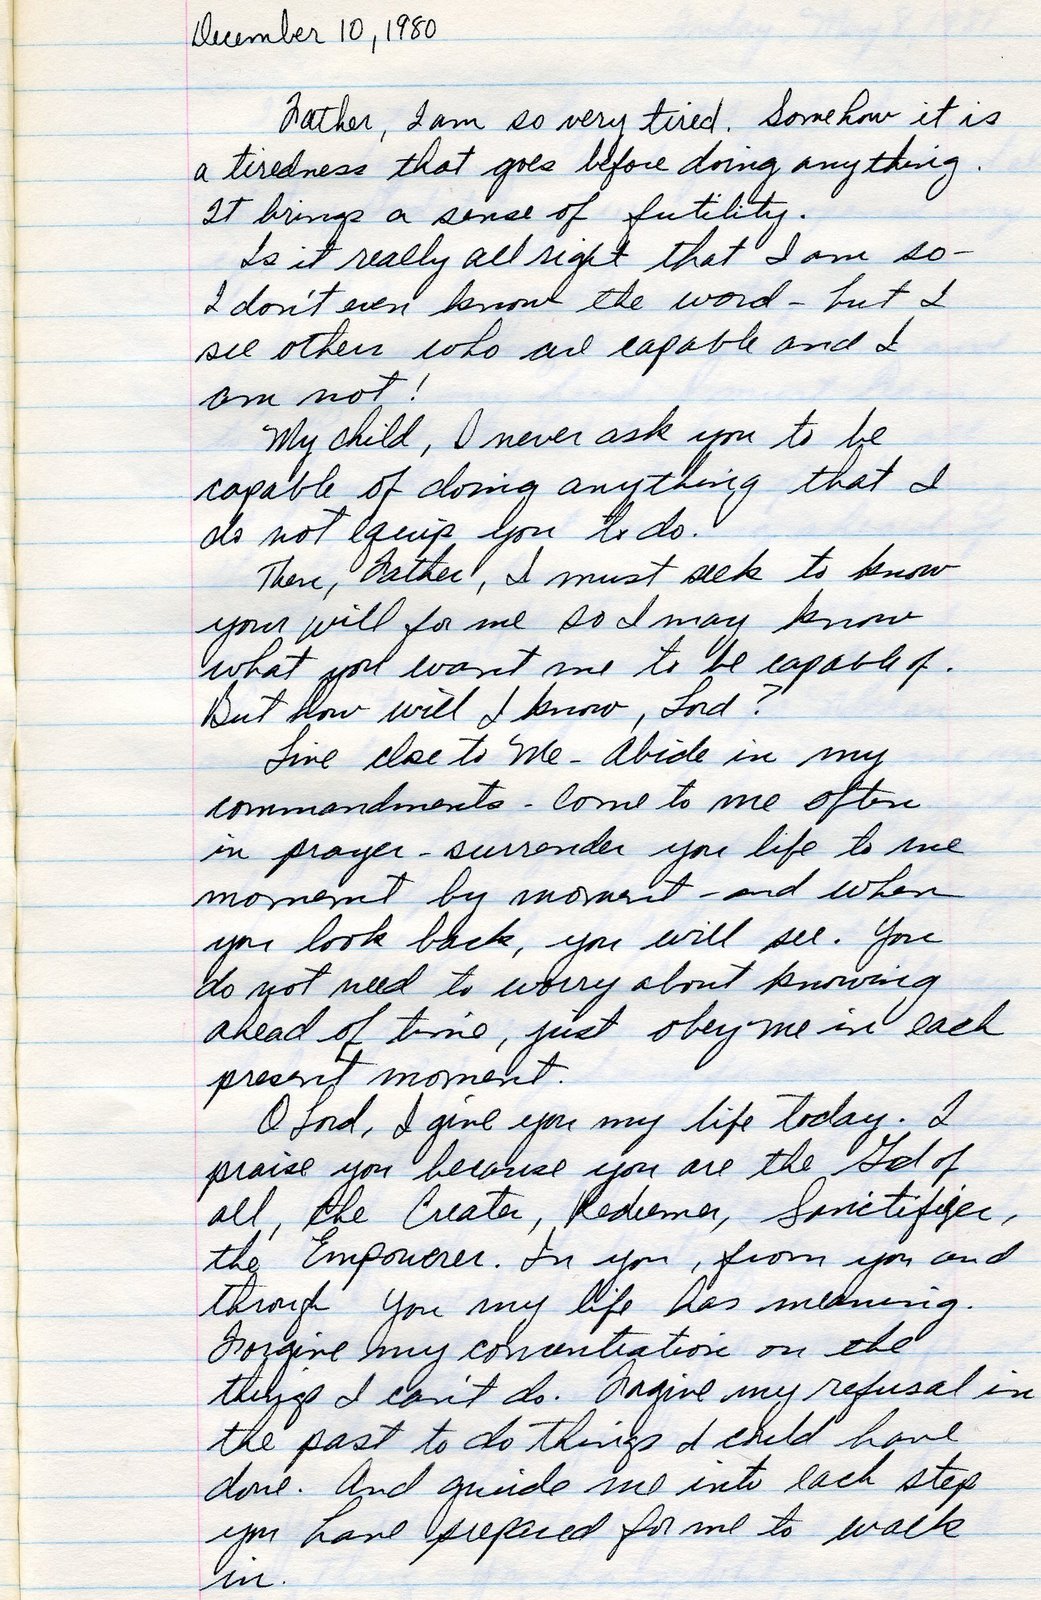 December 10, 1980
Father, I am so very tired. Somehow it is
a tiredness that goes before doing anything.
It brings a sense of futility.
Is it really all right that I am so -
I don't even know the word - but I
see others who are capable and I
am not!
My child, I never ask you to be
capable of doing anything that I
do not equip you to do.
Then, Father, I must seek to know
your will for me so I may know
what you want me to be capable of.
But how will I know, Lord?
Live close to Me - Abide in my
commandments - Come to me often
in prayer - surrender you life to me
moment by moment - and when
you look back, you will see. You
do not need to worry about knowing
ahead of time, just obey me in each
present moment.
O Lord, I give you my life today. I
praise you because you are the God of
all, the Creator, Redeemer, Sanctifier,
the Empowerer. In you, from you and
through You my life has meaning.
Forgive my concentration on the
things I can't do. Forgive my refusal in
the past to do things I could have
done. And guide me into each step
you have prepared for me to walk
in.